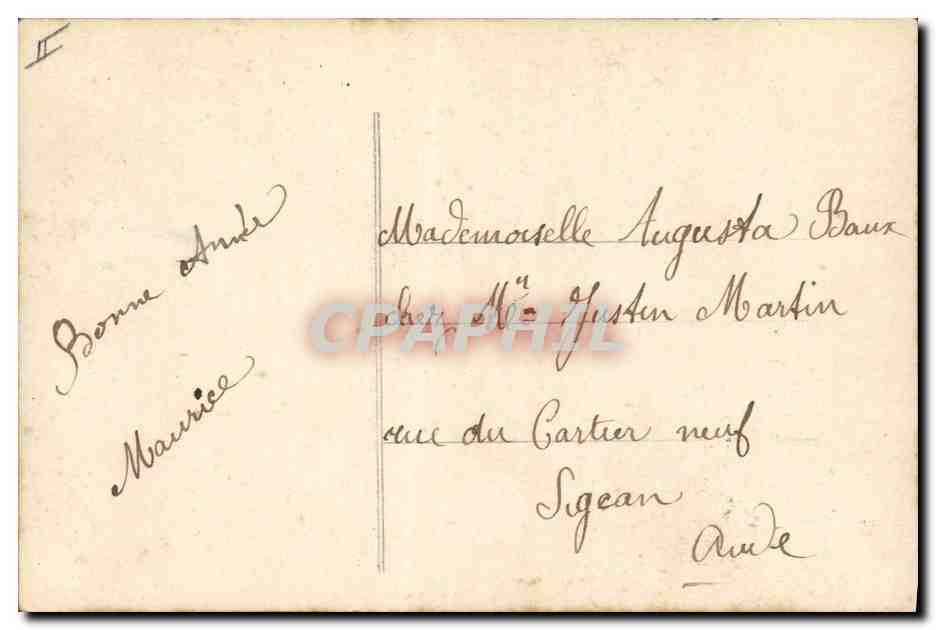 II
Bonne Année
Maurice
Mademoiselle Augusta Baux
chez Mr Justin Martin
rue du Cartier neuf
Sigean
Aude
CPAPHIL